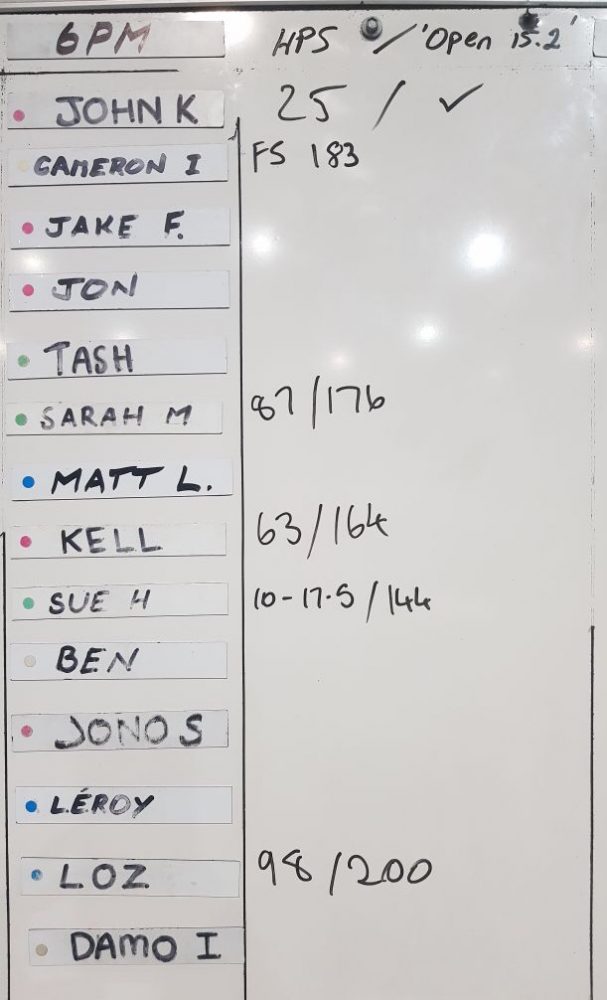 6PM HPS / 'Open 15.2'
JOHN K 25 / ✓
CAMERON I FS 183
JAKE F.
JON
TASH
SARAH M 87/176
MATT L.
KELL 63/164
SUE H 10-17.5/144
BEN
JONO S
LÉROY
LOZ 98/200
DAMO I